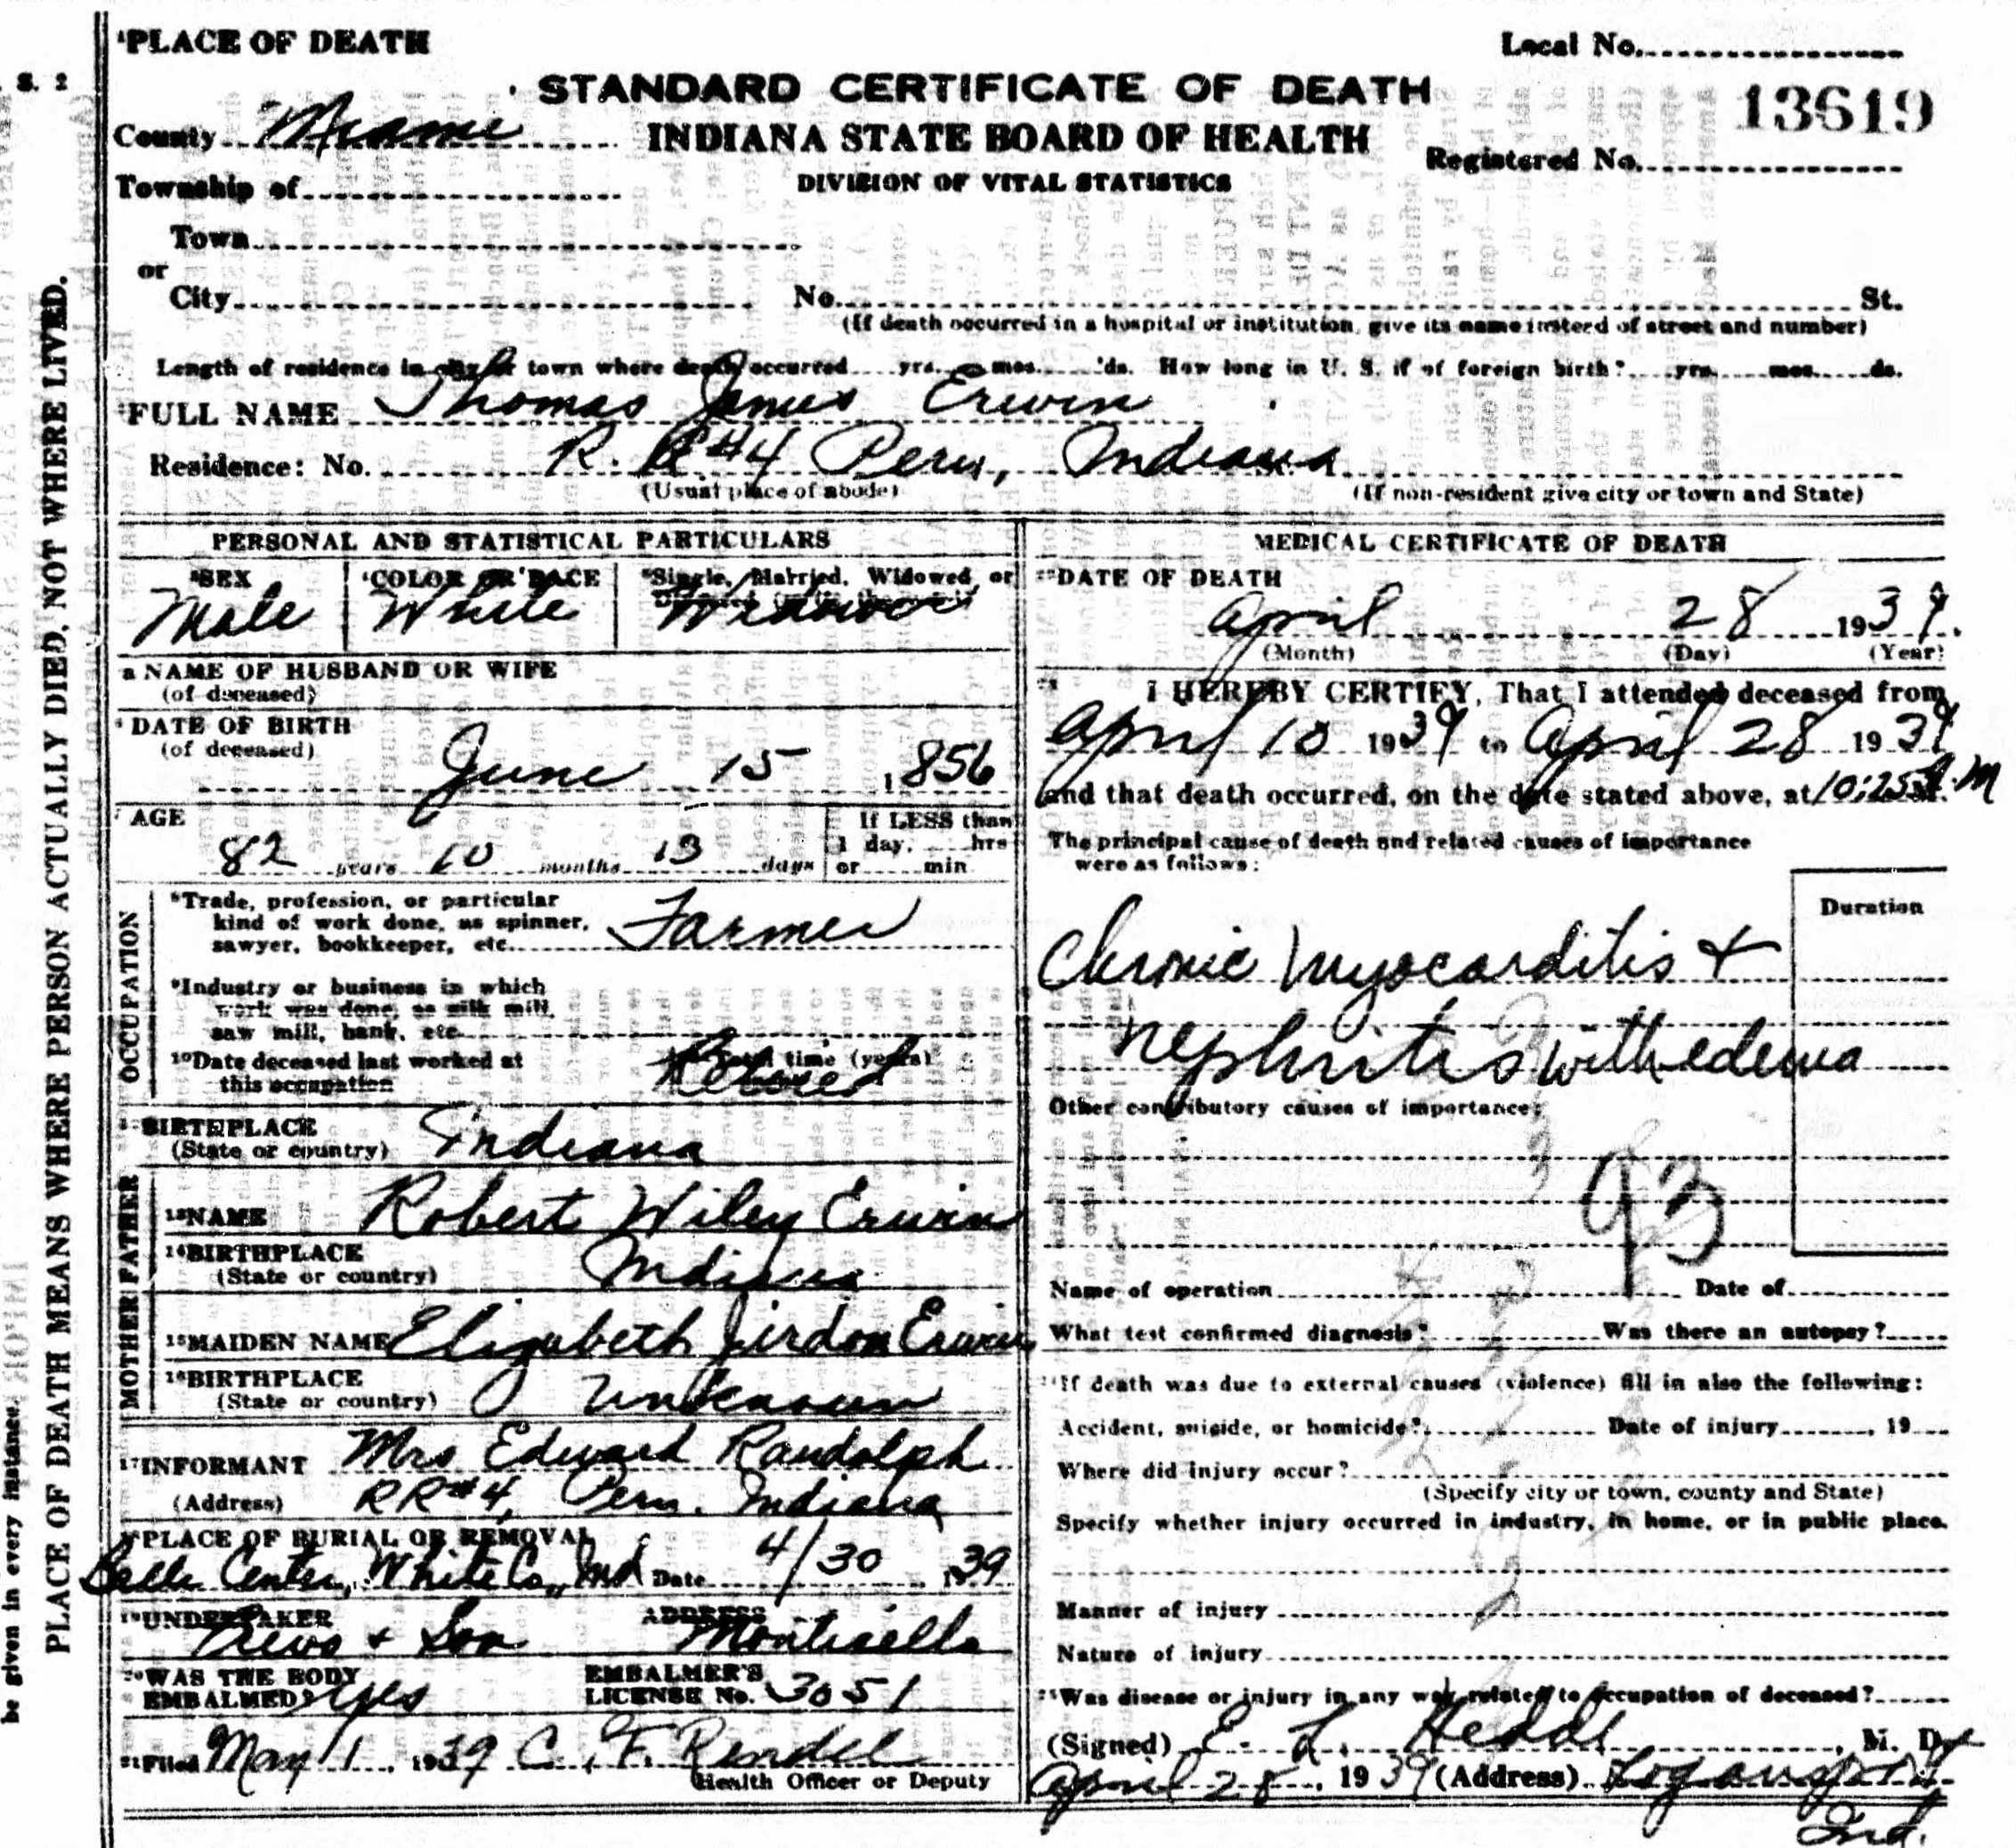 S. 2
PLACE OF DEATH MEANS WHERE PERSON ACTUALLY DIED, NOT WHERE LIVED.
be given in every instance.
¹PLACE OF DEATH
Local No.
STANDARD CERTIFICATE OF DEATH
13619
County Miami
INDIANA STATE BOARD OF HEALTH
Registered No.
Township of
DIVISION OF VITAL STATISTICS
Town
or
City No. St.
(If death occurred in a hospital or institution, give its name insteed of street and number)
Length of residence in city or town where death occurred yrs. mos. ds. How long in U. S. if of foreign birth? yrs. mos. ds.
²FULL NAME Thomas James Erwin
Residence: No. R. R #4 Peru, Indiana
(Usual place of abode) (If non-resident give city or town and State)
PERSONAL AND STATISTICAL PARTICULARS
³SEX ⁴COLOR OR RACE ⁵Single, Married, Widowed, or
Male White Widower
a NAME OF HUSBAND OR WIFE
(of deceased)
⁶DATE OF BIRTH
(of deceased)
June 15 1856
⁷AGE If LESS than
1 day, hrs
82 years 10 months 13 days or min.
OCCUPATION
⁸Trade, profession, or particular
kind of work done, as spinner, Farmer
sawyer, bookkeeper, etc.
⁹Industry or business in which
work was done, as silk mill,
saw mill, bank, etc.
¹⁰Date deceased last worked at Total time (years)
this occupation Retired
¹²BIRTHPLACE
(State or country) Indiana
FATHER
¹³NAME Robert Wiley Erwin
¹⁴BIRTHPLACE
(State or country) Indiana
MOTHER
¹⁵MAIDEN NAME Elizabeth Jirdon Erwin
¹⁶BIRTHPLACE
(State or country) Unknown
¹⁷INFORMANT Mrs Edward Randolph
(Address) RR#4, Peru, Indiana
¹⁸PLACE OF BURIAL OR REMOVAL
Center, White Co., Ind Date 4/30, 1939
¹⁹UNDERTAKER ADDRESS
& Son Monticello
²⁰WAS THE BODY EMBALMER'S
EMBALMED? yes LICENSE No. 3051
²¹Filed May 1, 1939 C. F. Rendel
Health Officer or Deputy
MEDICAL CERTIFICATE OF DEATH
²²DATE OF DEATH
April 28 1939.
(Month) (Day) (Year)
²³ I HEREBY CERTIFY, That I attended deceased from
April 10 1939 to April 28 1939
and that death occurred, on the date stated above, at 10:25 A.M
The principal cause of death and related causes of importance
were as follows:
Duration
Chronic Myocarditis +
Nephritis with edema
Other contributory causes of importance:
93
Name of operation Date of
What test confirmed diagnosis? Was there an autopsy?
²⁴If death was due to external causes (violence) fill in also the following:
Accident, suicide, or homicide? Date of injury , 19
Where did injury occur?
(Specify city or town, county and State)
Specify whether injury occurred in industry, in home, or in public place.
Manner of injury
Nature of injury
²⁵Was disease or injury in any way related to occupation of deceased?
(Signed) E. L. , M. D.
April 28, 1939 (Address) Logansport
Ind.